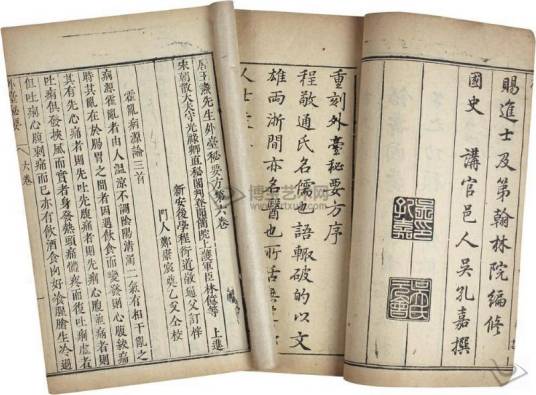 賜進士及第翰林院編修
國史　講官邑人吳孔嘉撰
重刻外臺秘要方序
程敬通氏名儒也語輙破的以文
雄兩浙間亦名醫也
人士
唐王燾先生外臺秘要方第六卷
宋朝散大夫守光祿卿直秘閣判登聞檢院上護軍臣林億等　上進
新安後學程衍道敬通父訂梓
門人
霍亂病源論三首
病源霍亂者由人溫涼不調陰陽清濁二氣有相干亂之
時其亂在於腸胃之間者因遇飲食而變發則心腹絞痛
其有先心痛者則先吐先腹痛者則先痢心腹並痛者則
吐痢俱發挾風而實者身發熱頭痛體疼而復吐痢虛者
但吐痢心腹刺痛而已亦有飲酒食肉好食腥膾生冷過
外臺秘要
六卷
博宝艺术网